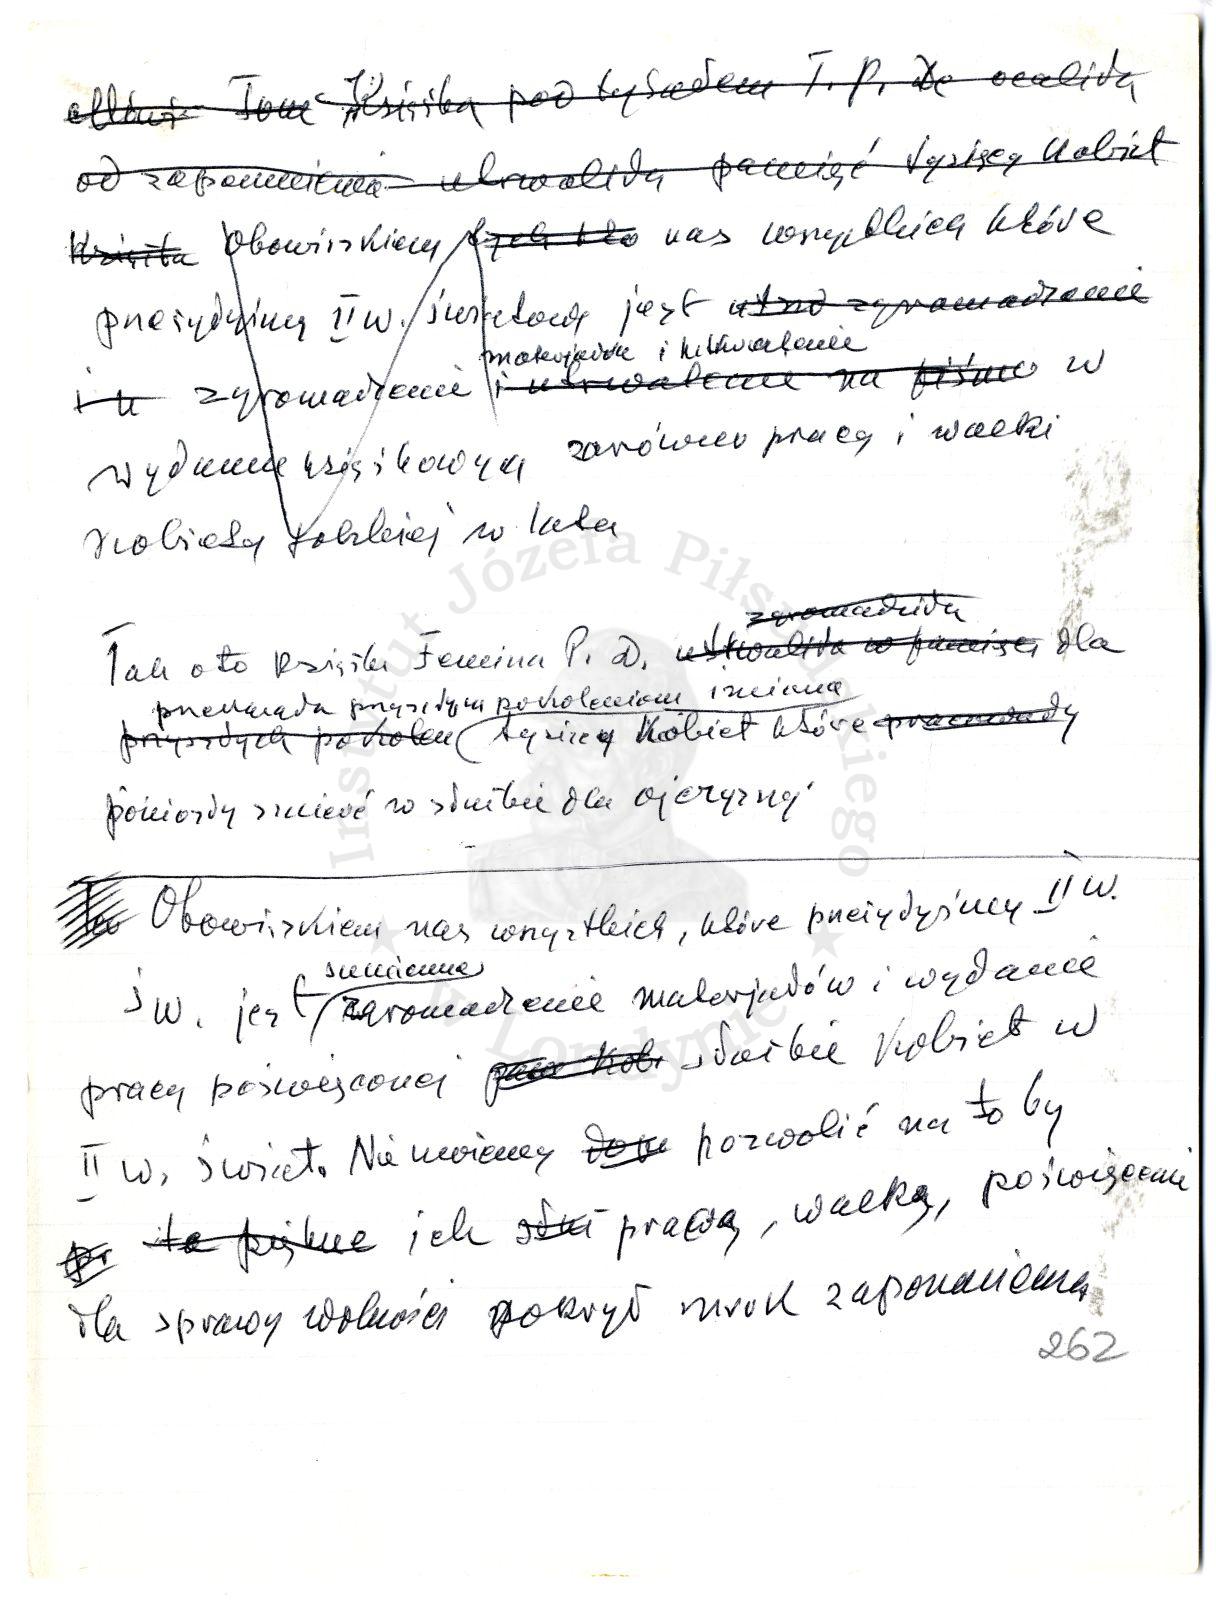 Tom Książka pod tytułem F. P. D. ocaliła
od zapomnienia utrwaliła pamięć tysięcy kobiet
Książka Obowiązkiem tych kto nas wszystkich które
przeżyłyśmy II w. światową jest zgromadzenie
materjałów i utrwalenie
i u zgromadzenie i utrwalenie na piśmie w
wydaniu książkowym zarówno pracy i walki
Kobiety Polskiej w lata
zgromadziła
Tak oto książka Femina P. D. utrwaliła w pamięci dla
przekazała przyszłym pokoleniom imiona
przyszłych pokoleń tysięcy Kobiet które
poniosły śmierć w służbie dla ojczyzny
Obowiązkiem nas wszystkich, które przeżyłyśmy II w.
sumienne
św. jest zgromadzenie materjałów i wydanie
pracy poświęconej Kob. służbie Kobiet w
II w. świat. Nie możemy pozwolić na to by
pr ta piękne ich pracą, walkę, poświęcenie
dla sprawy wolności pokrył mrok zapomnienia
262
Instytut Józefa Piłsudskiego
w Londynie